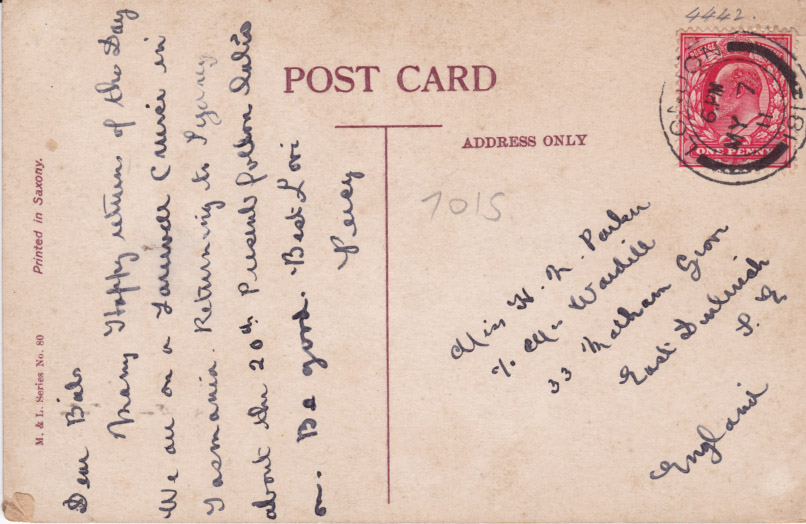 4442.
POST CARD
ADDRESS ONLY
LONDON
6 PM
MY 7
11
ONE PENNY
Printed in Saxony.
M. & L. Series No. 80
1015
Dear Babs
Many Happy returns of the Day
We are on a Farewell Cruise in
Tasmania. Returning to Sydney
about the 20th Present follow later
on. Be good. Best Love
Percy
Miss H. N. Parker
33 Matham Grov
East Dulwich
S. E
England